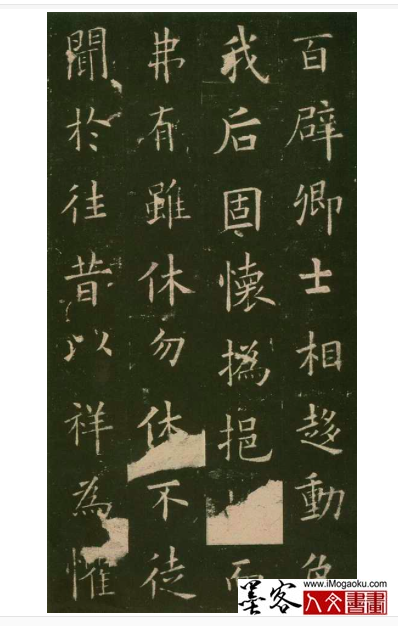 百辟卿士相趍動色
我后固懷撝挹而
弗有雖休勿休不徒
聞於往昔以祥為懼
墨客
www.iMogaoku.com
人文書畫